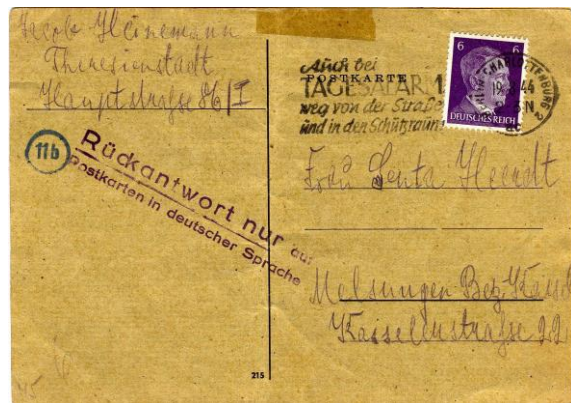 Jacob Heinemann
Theresienstadt
Hauptstraße 36/I
11b
Rückantwort nur au
Postkarten in deutscher Sprache
Auch bei
POSTKARTE
TAGESALAR
weg von der Straße
und in den Schutzraum
6 6
DEUTSCHES REICH
CHARLOTTENBURG 2
44
Frau Senta Heerdt
Melsungen Bez. Kassel
Kasselerstraße 22
215